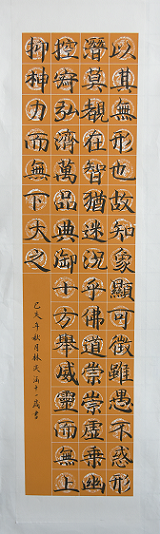 以其無形也故知象顯可徵雖愚不惑形
潛莫覩在智猶迷況乎佛道崇崇虛乘幽
控寂弘濟萬品典御十方舉威靈而無上
抑神力而無下大之
己亥年秋月林天
書